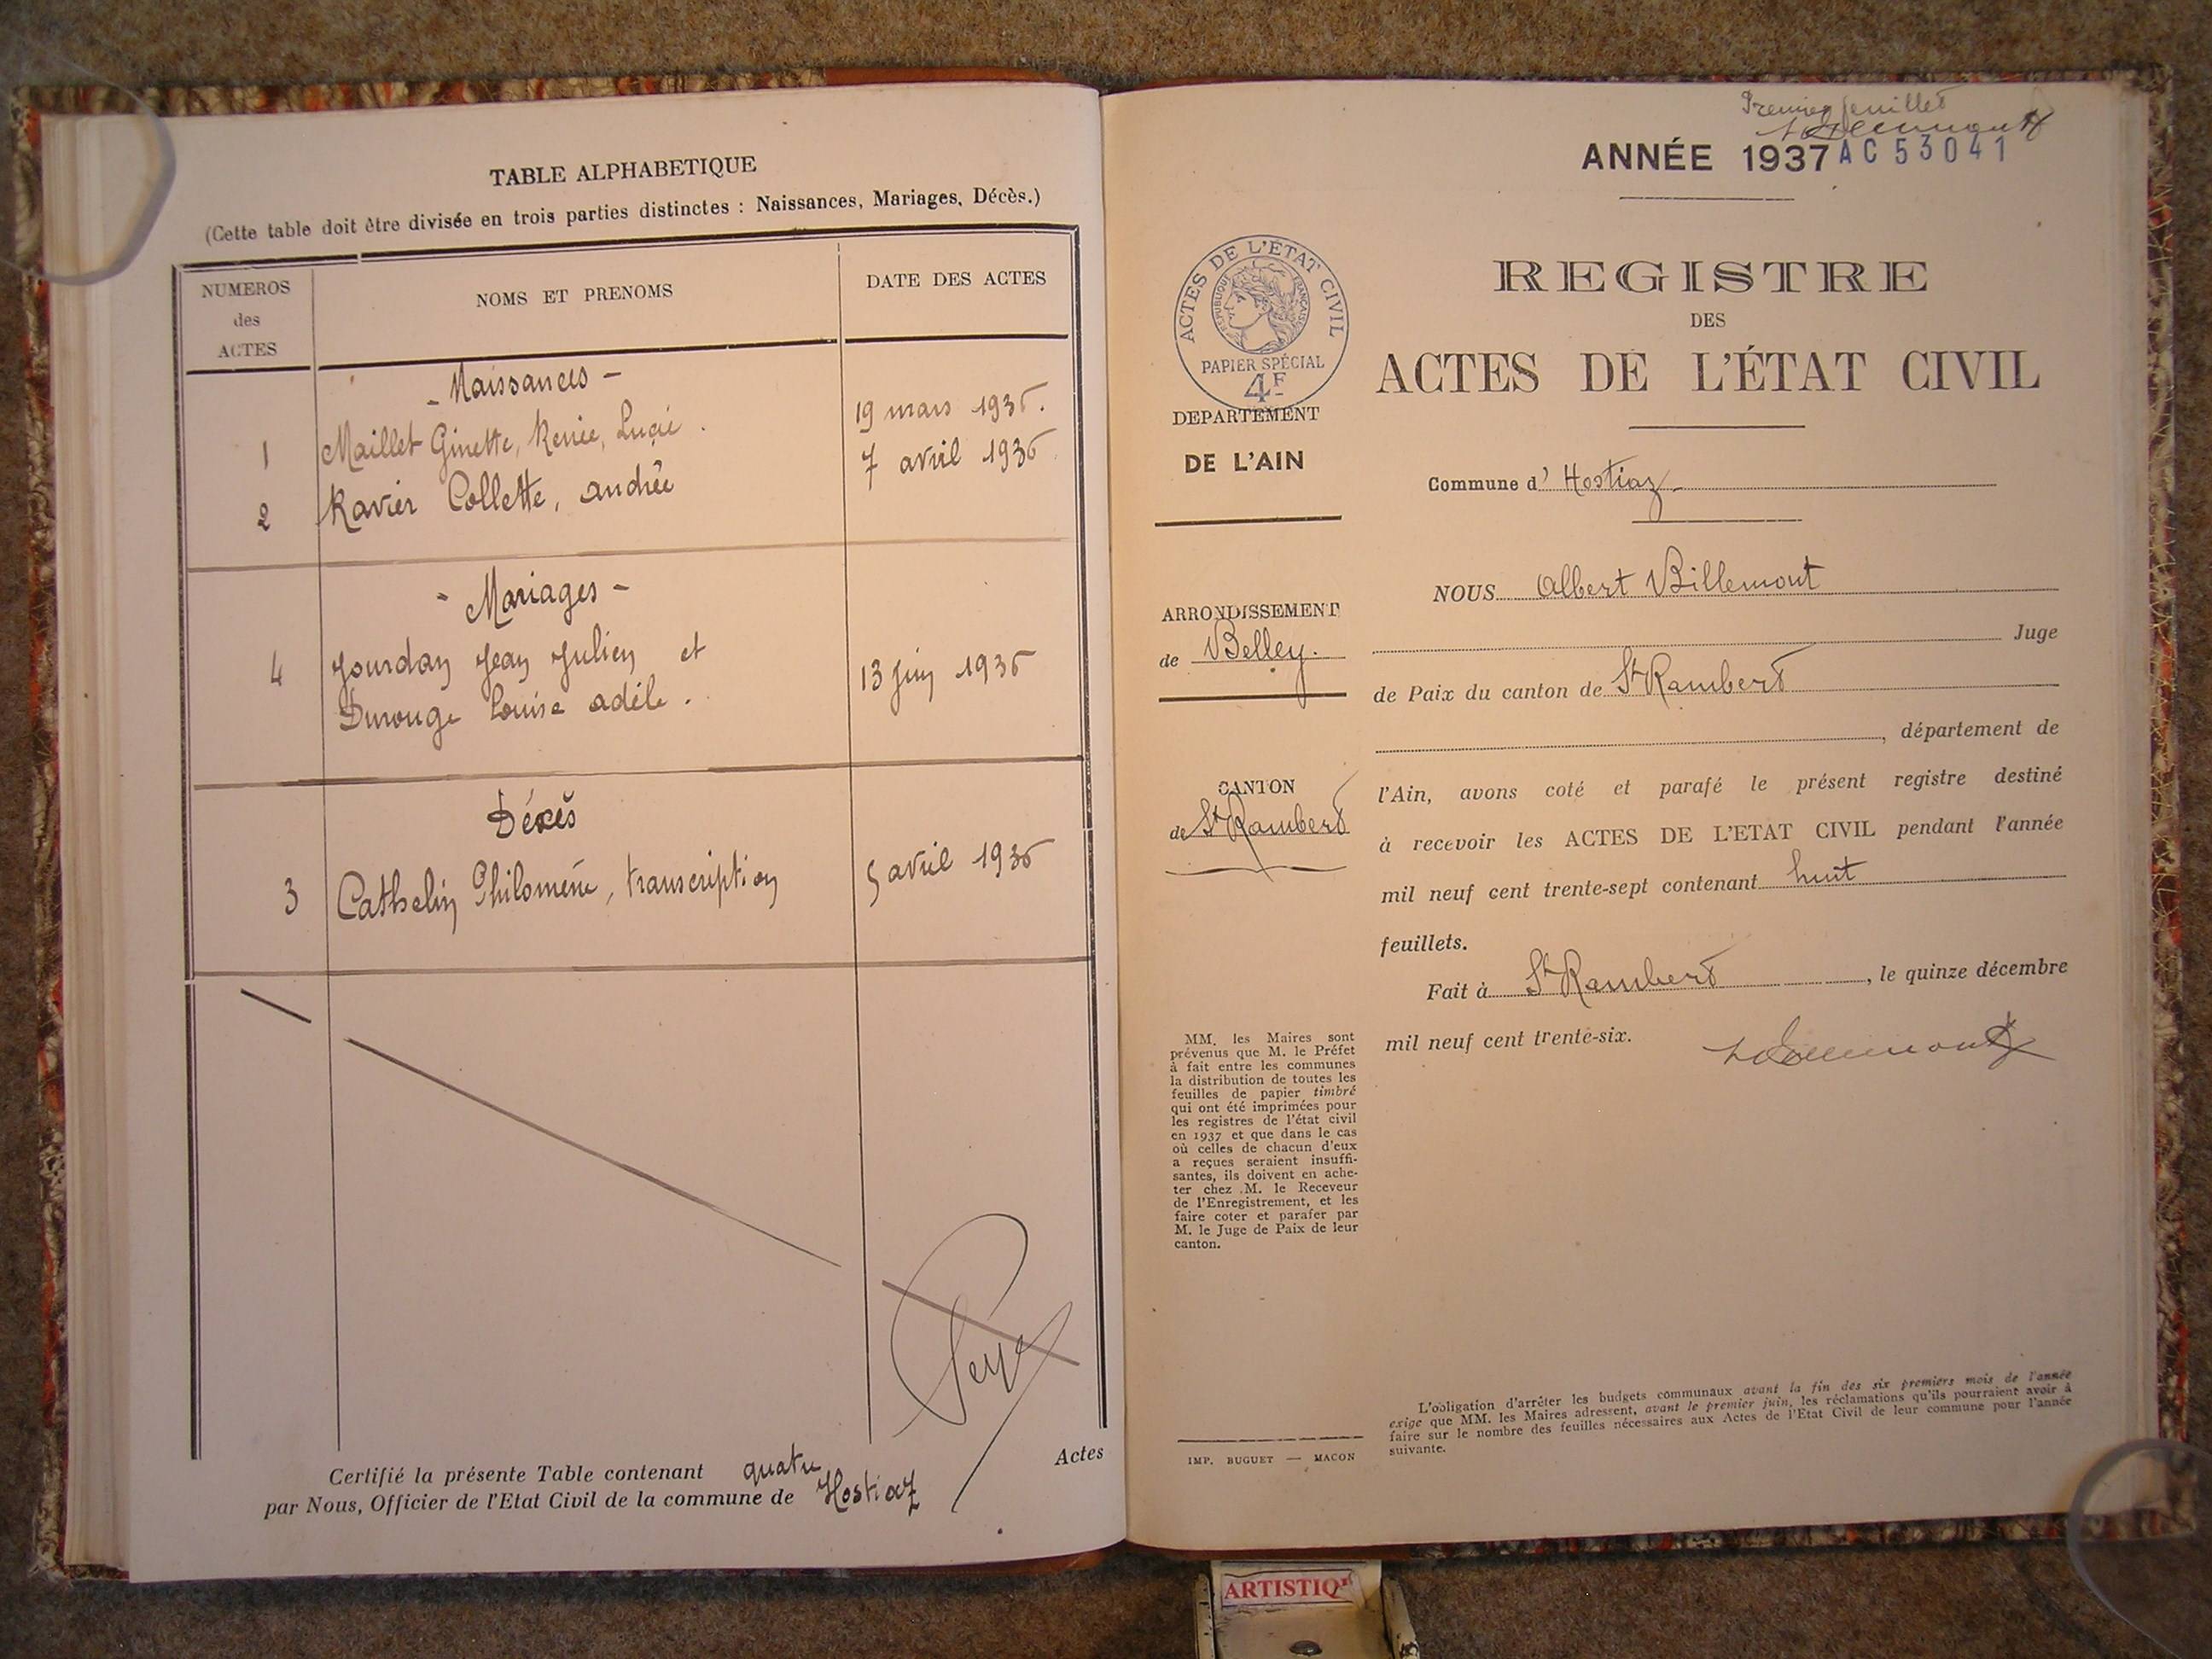 TABLE ALPHABETIQUE
(Cette table doit être divisée en trois parties distinctes : Naissances, Mariages, Décès.)
NUMEROS
des
ACTES
NOMS ET PRENOMS
DATE DES ACTES
- Naissances -
1 Maillet Ginette, Renée, Lucie. 19 mars 1936.
2 Ravier Collette, andrée 7 avril 1936.
- Mariages -
4 Jourdan Jean Julien et
Durouge Louise adèle. 13 juin 1936
Décès
3 Cathelin Philomène, transcription 5 avril 1936
Certifié la présente Table contenant quatre Actes
par Nous, Officier de l'Etat Civil de la commune de Hostiaz
Premier feuillet
ANNÉE 1937 AC 53041
ACTES DE L'ÉTAT CIVIL
RÉPUBLIQUE FRANÇAISE
PAPIER SPÉCIAL
4F
DEPARTEMENT
DE L'AIN
ARRONDISSEMENT
de Belley.
CANTON
de St Rambert
MM. les Maires sont
prévenus que M. le Préfet
à fait entre les communes
la distribution de toutes les
feuilles de papier timbré
qui ont été imprimées pour
les registres de l'état civil
en 1937 et que dans le cas
où celles de chacun d'eux
a reçues seraient insuffi-
santes, ils doivent en ache-
ter chez M. le Receveur
de l'Enregistrement, et les
faire coter et parafer par
M. le Juge de Paix de leur
canton.
IMP. BUGUET — MACON
REGISTRE
DES
ACTES DE L'ÉTAT CIVIL
Commune d' Hostiaz
NOUS Albert Billemont
Juge
de Paix du canton de St Rambert
, département de
l'Ain, avons coté et parafé le présent registre destiné
à recevoir les ACTES DE L'ETAT CIVIL pendant l'année
mil neuf cent trente-sept contenant huit
feuillets.
Fait à St Rambert, le quinze décembre
mil neuf cent trente-six.
L'obligation d'arrêter les budgets communaux avant la fin des six premiers mois de l'année
exige que MM. les Maires adressent, avant le premier juin, les réclamations qu'ils pourraient avoir à
faire sur le nombre des feuilles nécessaires aux Actes de l'Etat Civil de leur commune pour l'année
suivante.
ARTISTIQ